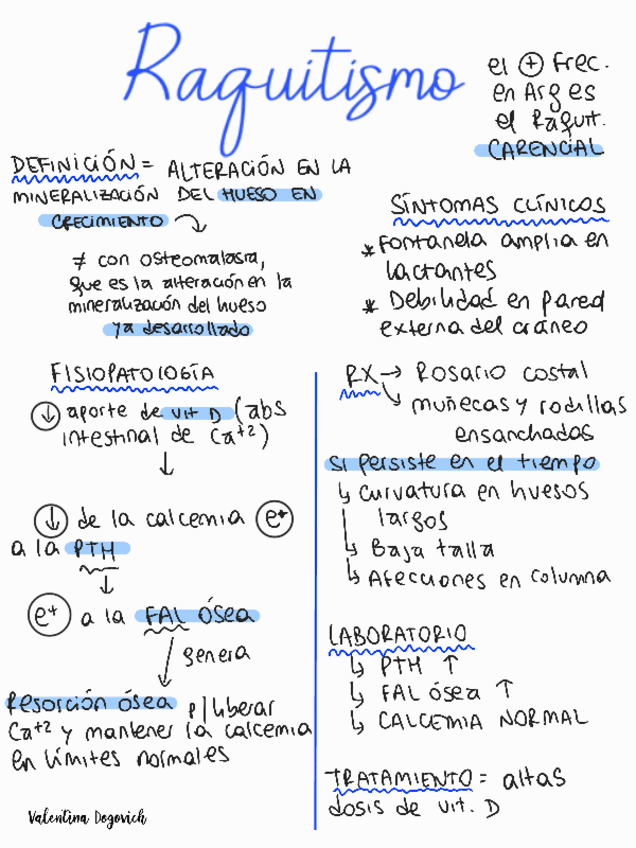 Raquitismo
el (+) Frec.
en Arg es
el Raquit.
CARENCIAL
DEFINICIÓN = ALTERACIÓN EN LA
MINERALIZACIÓN DEL HUESO EN
CRECIMIENTO
≠ con osteomalasia,
que es la alteración en la
mineralización del hueso
ya desarrollado
SÍNTOMAS CLÍNICOS
* Fontanela amplia en
lactantes
* Debilidad en pared
externa del cráneo
FISIOPATOLOGÍA
↓ aporte de vit D (abs
intestinal de Ca+2)
↓
↓ de la calcemia e+
a la PTH
↓
e+ a la FAL ósea
↓ genera
Resorción ósea p/ liberar
Ca+2 y mantener la calcemia
en límites normales
RX → Rosario costal
↳ muñecas y rodillas
ensanchados
Si persiste en el tiempo
↳ curvatura en huesos
largos
↳ Baja talla
↳ Afecciones en columna
LABORATORIO
↳ PTH ↑
↳ FAL ósea ↑
↳ CALCEMIA NORMAL
TRATAMIENTO = altas
dosis de vit. D
Valentina Dogovich